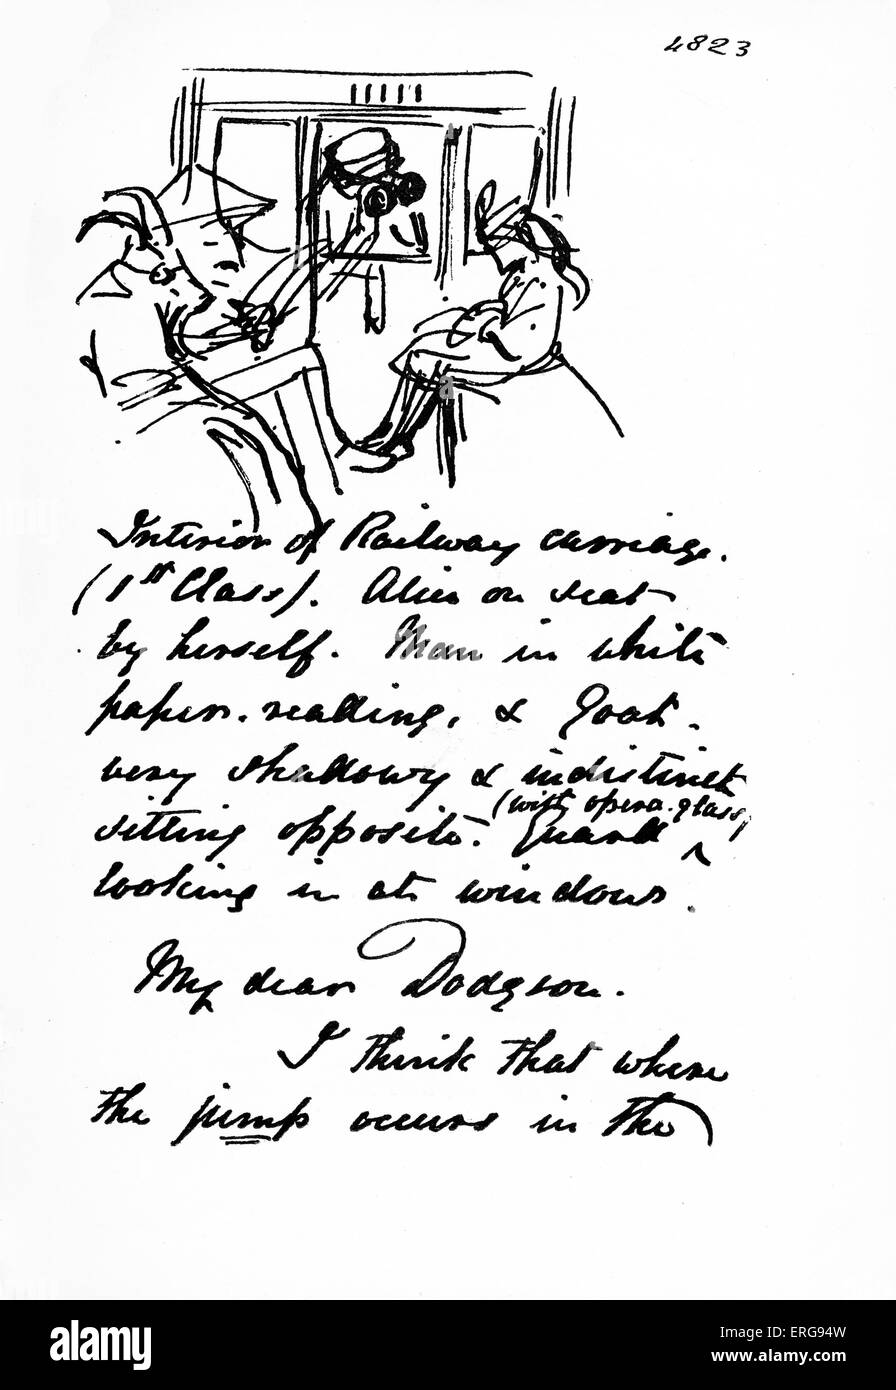 4823
Interior of Railway carriage.
(1st Class). Alice on seat
by herself. Man in white
paper. reading, & Goat.
very shadowy & indistinct
sitting opposite. Guard (with opera. glass)
looking in at window.
My dear Dodgson.
I think that where
the jump occurs in the
a
alamy
alamy
Image ID: ERG94W
www.alamy.com